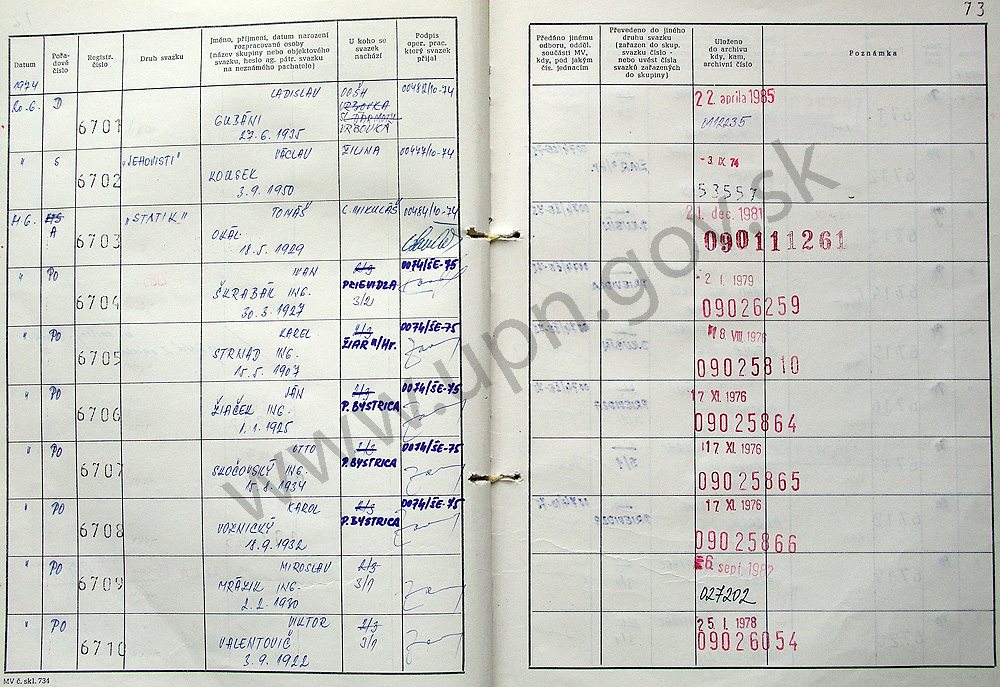 73
Datum
Pořa-
dové
číslo
Registr.
číslo
Druh svazku
Jméno, příjmení, datum narození
rozpracované osoby
(název skupiny nebo objektového
svazku, heslo ag. pátr. svazku
na neznámého pachatele)
U koho se
svazek
nachází
Podpis
oper. prac.
který svazek
přijal
Předáno jinému
odboru, odděl.
součásti MV,
kdy, pod jakým
čís. jednacím
Převedeno do jiného
druhu svazku
(zařazen do skup.
svazku číslo -
nebo uvést čísla
svazků zařazených
do skupiny)
Uloženo
do archivu
kdy, kam,
archivní číslo
Poznámka
1974
20.6. D 6701
LADISLAV
GUBÁNI
27.6. 1935
DOŠH
VRBOVKA
00482/10-74
22. apríla 1985
" S 6702 "JEHOVISTI"
VÁCLAV
KOUSEK
3.9. 1950
ŽILINA
00477/10-74
-3. IX. 74
53557
A 6703 "STATIK"
TOMÁŠ
OKÁL
18.5. 1929
L. MIKULÁŠ
00484/10-74
21. dec. 1981
090111261
" PO 6704
IVAN
ŠKRABÁK ING.
30.3. 1927
2/3
PRIEVIDZA
3/2
0074/ŠE-75
-2. I. 1979
09026259
" PO 6705
KAREL
STRNAD ING.
15.5. 1907
2/3
ŽIAR n/Hr.
0074/ŠE-75
18. VIII. 1976
09025810
" PO 6706
JÁN
ŽIAČEK ING.
1.1. 1925
2/3
P. BYSTRICA
0074/ŠE-75
17. XI. 1976
09025864
" PO 6707
OTTO
SKOČOVSKÝ ING.
15.8. 1934
2/3
P. BYSTRICA
0074/ŠE-75
17. XI. 1976
09025865
" PO 6708
KAROL
VOZNICKÝ
18.9. 1932
2/3
P. BYSTRICA
0074/ŠE-75
17. XI. 1976
09025866
" PO 6709
MIROSLAV
MRÁZIK ING.
2.2. 1930
2/3
3/1
6. sept.
027202
" PO 6710
VIKTOR
VALENTOVIČ
3.9. 1922
2/3
3/1
25. I. 1978
09026054
MV č. skl. 734
www.upn.gov.sk